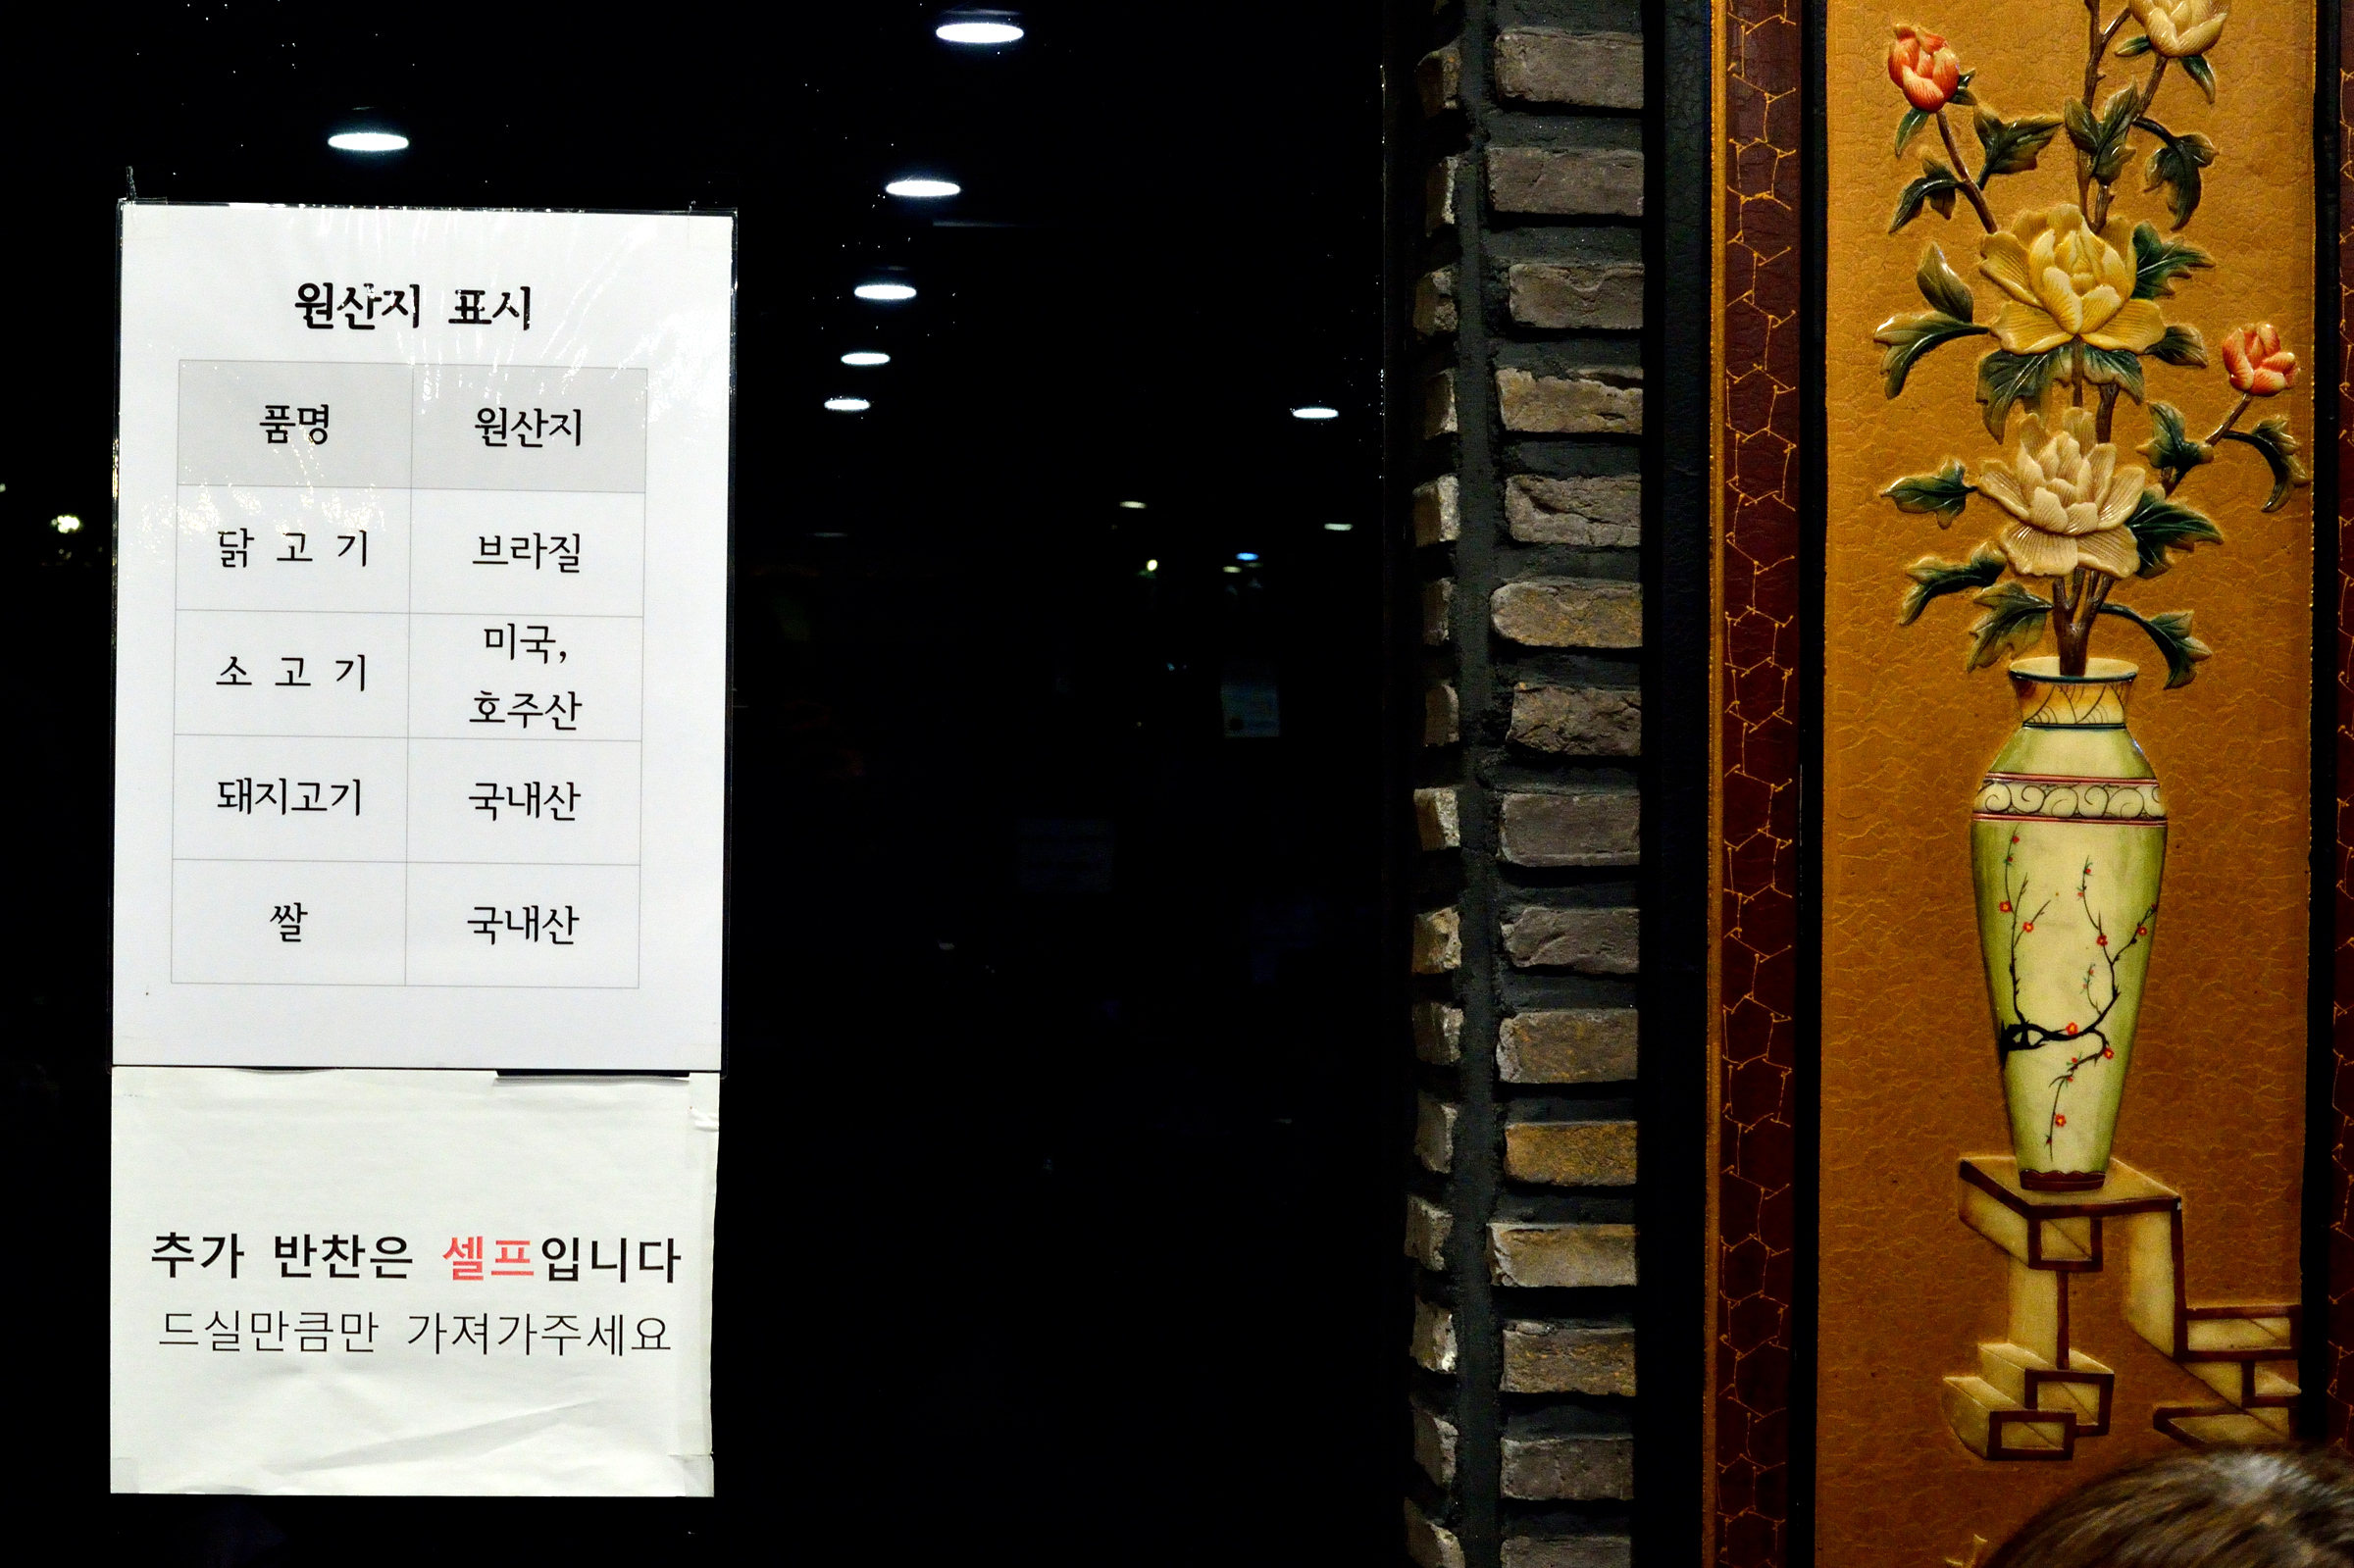 원산지 표시
품명 원산지
닭 고 기 브라질
소 고 기 미국,
호주산
돼지고기 국내산
쌀 국내산
추가 반찬은 셀프입니다
드실만큼만 가져가주세요